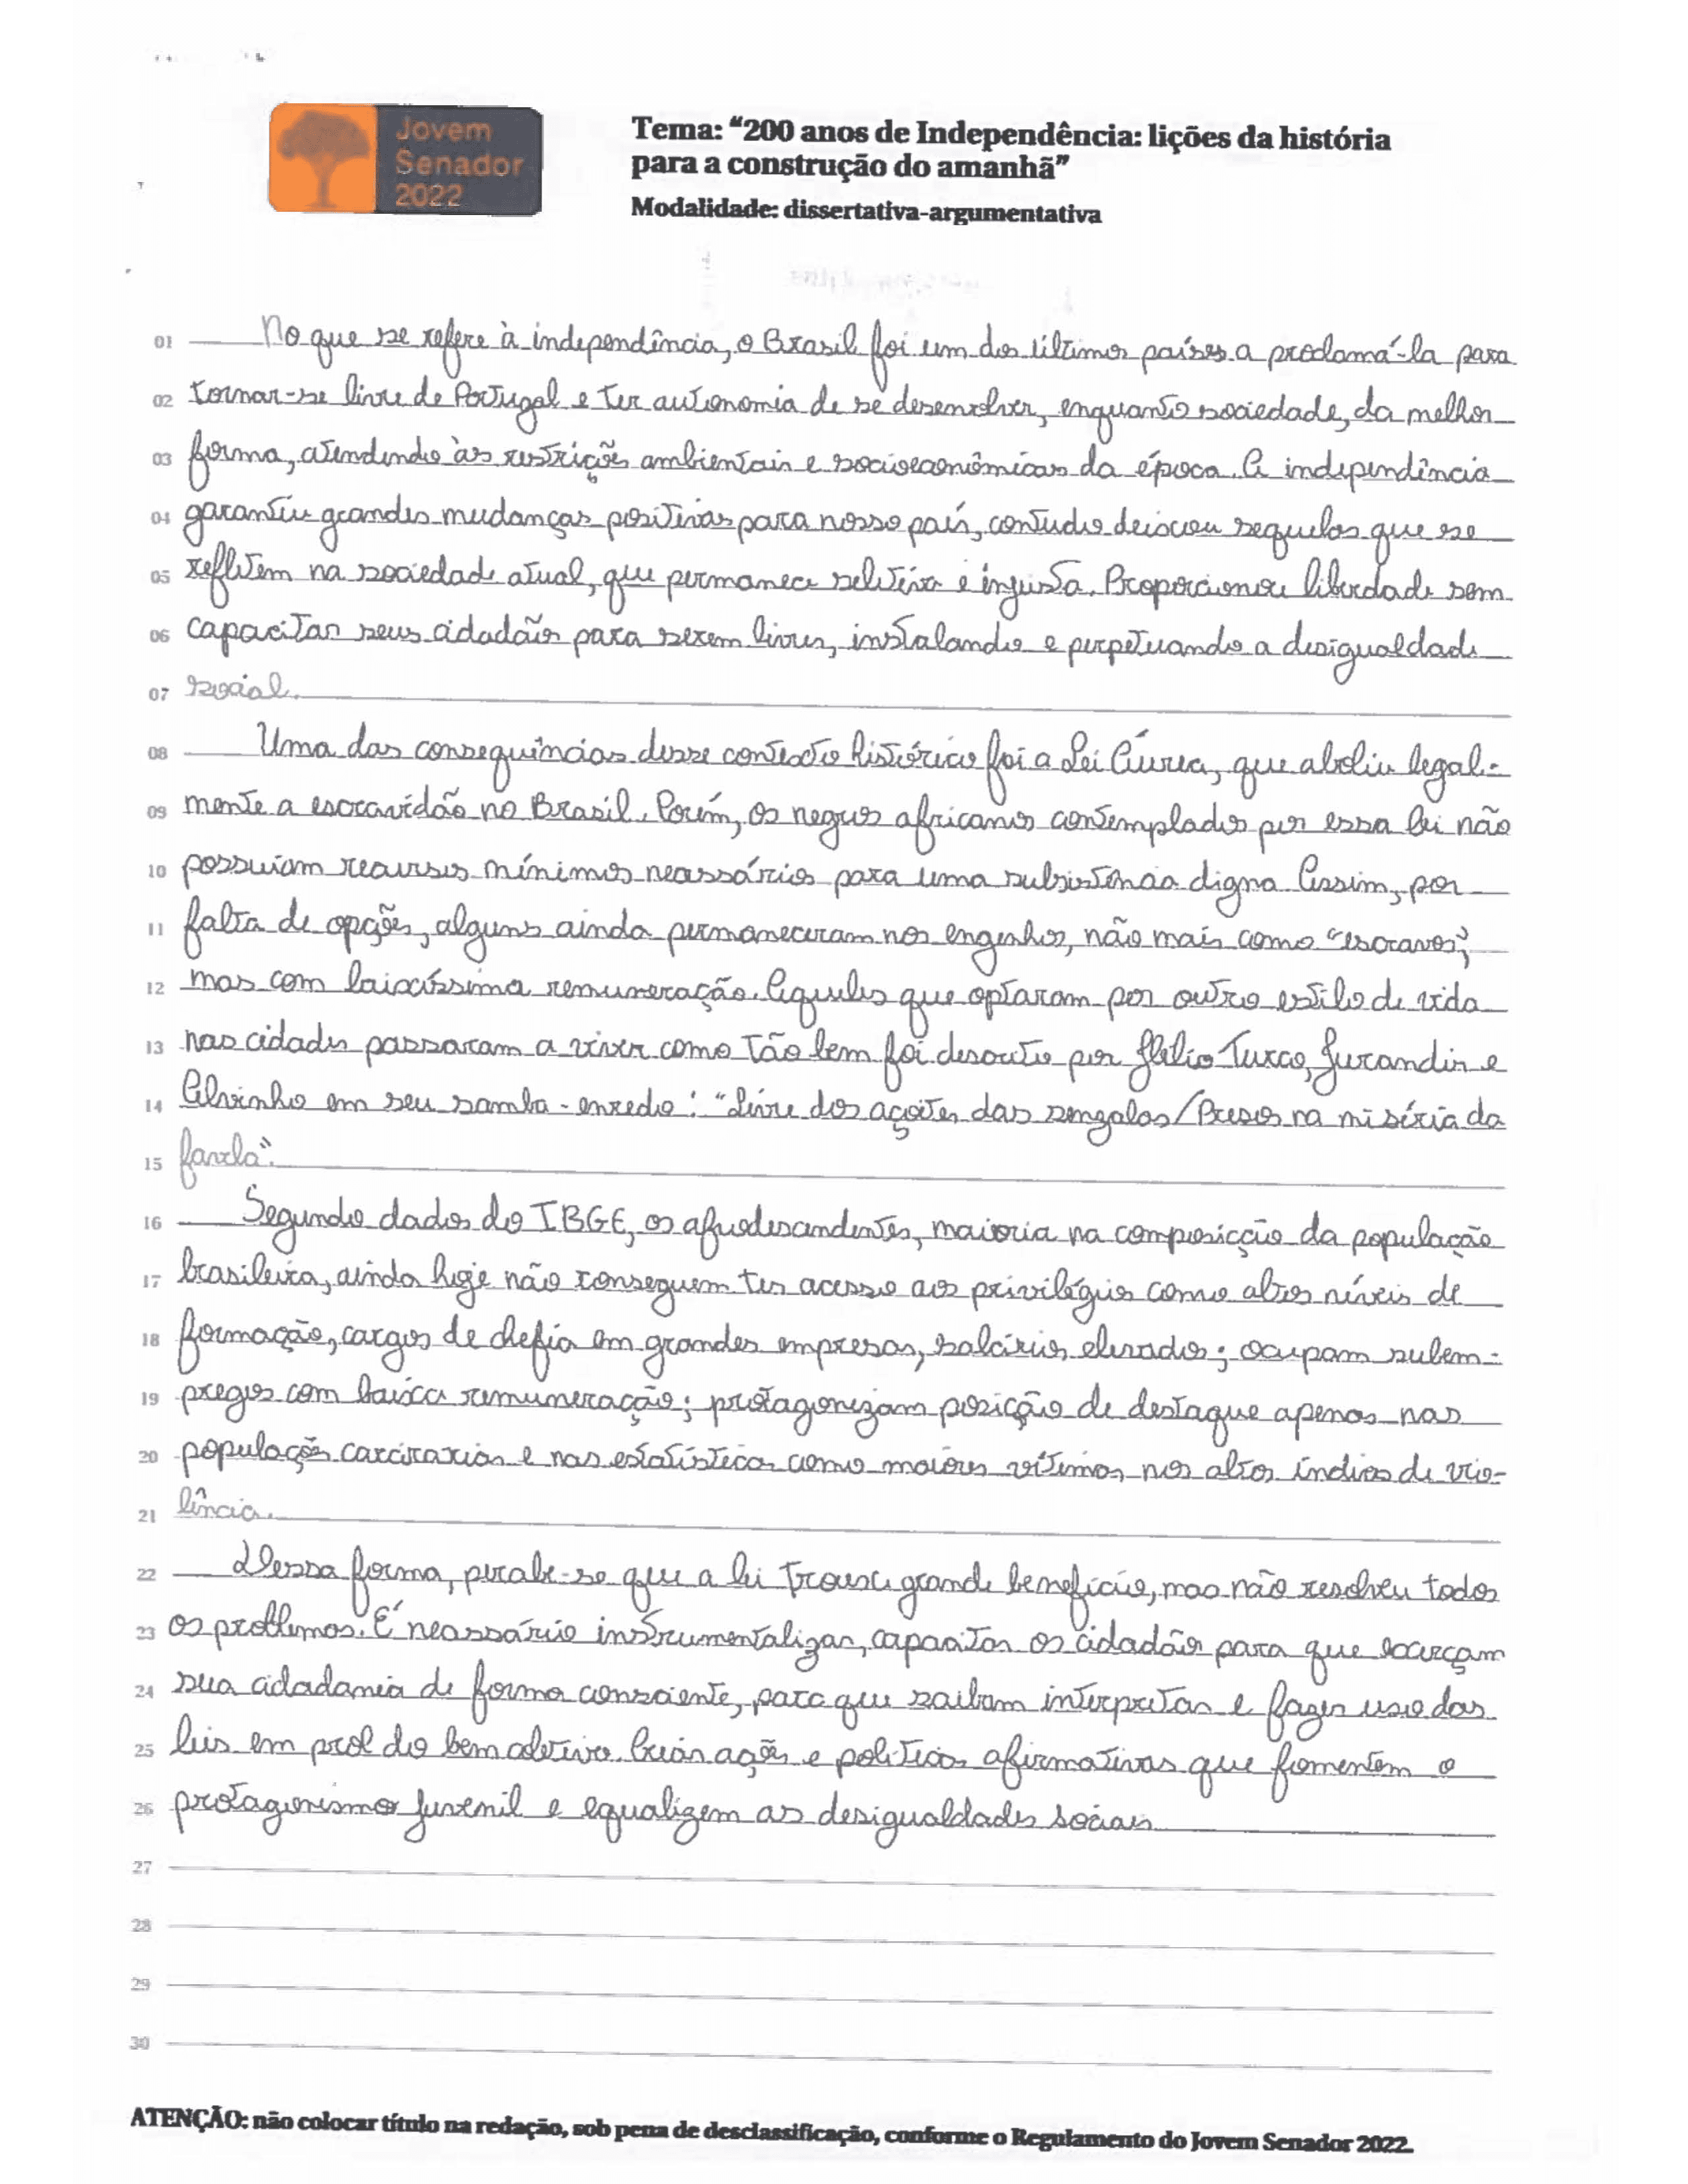 Jovem
Senador
2022
Tema: “200 anos de Independência: lições da história
para a construção do amanhã”
Modalidade: dissertativa-argumentativa
01 No que se refere à independência, o Brasil foi um dos últimos países a proclamá-la para
02 tornar-se livre de Portugal e ter autonomia de se desenvolver, enquanto sociedade, da melhor
03 forma, atendendo às restrições ambientais e socioeconômicas da época. A independência
04 garantiu grandes mudanças positivas para nosso país, contudo deixou sequelas que se
05 refletem na sociedade atual, que permanece seletiva e injusta. Proporcionou liberdade sem
06 capacitar seus cidadãos para serem livres, instalando e perpetuando a desigualdade
07 social.
08 Uma das consequências desse contexto histórico foi a Lei Áurea, que aboliu legal-
09 mente a escravidão no Brasil. Porém, os negros africanos contemplados por essa lei não
10 possuiam recursos mínimos necessários para uma subsistência digna. Assim, por
11 falta de opções, alguns ainda permaneceram nos engenhos, não mais como “escravos”,
12 mas com baixíssima remuneração. Aqueles que optaram por outro estilo de vida
13 nas cidades passaram a viver como tão bem foi descrito por Hélio Turco, Jurandir e
14 Alvinho em seu samba-enredo: “Livre dos açoites das senzalas/Presos na miséria da
15 favela”.
16 Segundo dados do IBGE, os afrodescendentes, maioria na composicção da população
17 brasileira, ainda hoje não conseguem ter acesso aos privilégios como altos níveis de
18 formação, cargos de chefia em grandes empresas, salários elevados; ocupam subem-
19 pregos com baixa remuneração; protagonizam posição de destaque apenas nas
20 populações carcerarias e nas estatísticas como maiores vítimas nos altos índices de vio-
21 lência.
22 Dessa forma, percebe-se que a lei trouxe grande benefício, mas não resolveu todos
23 os problemas. É necessário instrumentalizar, capacitar os cidadãos para que exerçam
24 sua cidadania de forma consciente, para que saibam interpretar e fazer uso das
25 leis em prol do bem coletivo. Criar ações e politicas afirmativas que fomentem o
26 protagonismo juvenil e equalizem as desigualdades sociais
27
28
29
30
ATENÇÃO: não colocar título na redação, sob pena de desclassificação, conforme o Regulamento do Jovem Senador 2022.